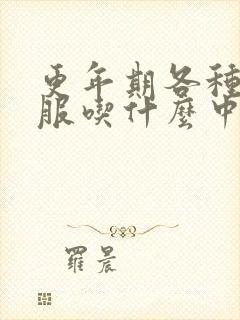 更年期各種
服喫什麼中
羅晨